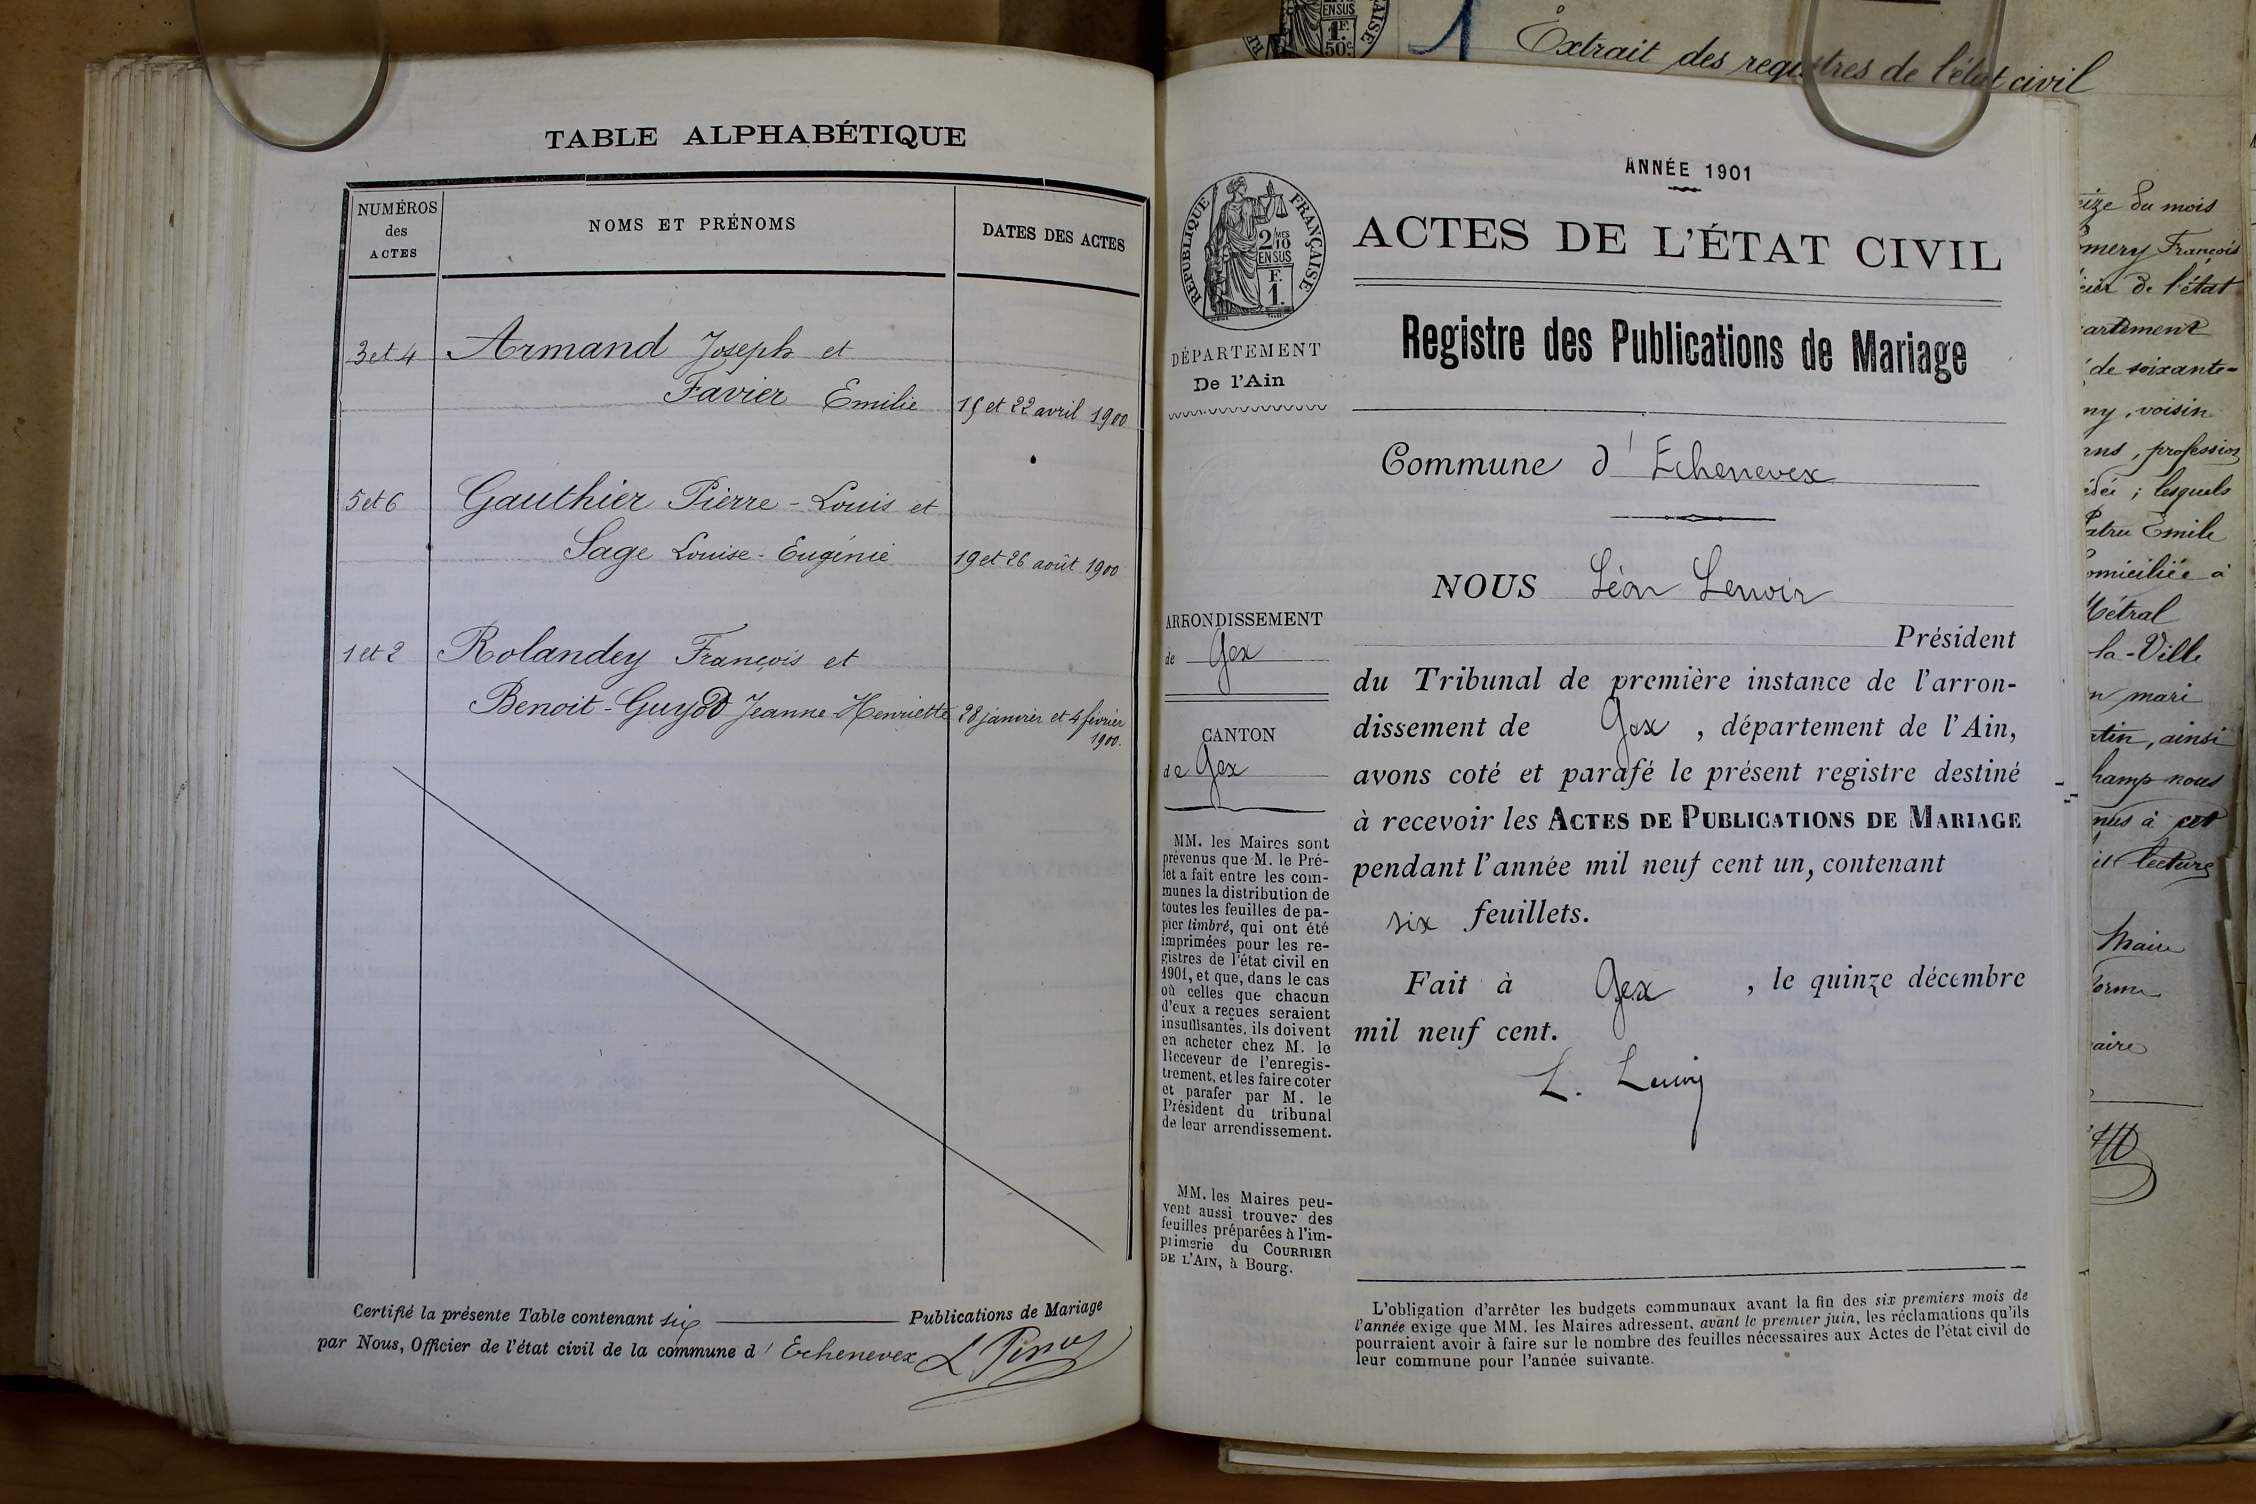 TABLE ALPHABÉTIQUE
NUMÉROS
des
ACTES
NOMS ET PRÉNOMS
DATES DES ACTES
3 et 4 Armand Joseph et
Favier Emilie 15 et 22 avril 1900
5 et 6 Gauthier Pierre-Louis et
Sage Louise-Eugénie 19 et 26 août 1900
1 et 2 Rolandey François et
Benoit-Guyod Jeanne-Henriette 28 janvier et 4 février
1900.
Certifié la présente Table contenant six Publications de Mariage
par Nous, Officier de l'état civil de la commune d'Echenevex
ANNÉE 1901
ACTES DE L'ÉTAT CIVIL
RÉPUBLIQUE FRANÇAISE
2 MES
10
EN SUS
F.
1.
DÉPARTEMENT
De l'Ain
Registre des Publications de Mariage
Commune d'Echenevex
NOUS Léon Lenoir
Président
du Tribunal de première instance de l'arron-
dissement de Gex, département de l'Ain,
avons coté et parafé le présent registre destiné
à recevoir les ACTES DE PUBLICATIONS DE MARIAGE
pendant l'année mil neuf cent un, contenant
six feuillets.
Fait à Gex, le quinze décembre
mil neuf cent.
L. Lenoir
ARRONDISSEMENT
de Gex
CANTON
de Gex
MM. les Maires sont
prévenus que M. le Pré-
fet a fait entre les com-
munes la distribution de
toutes les feuilles de pa-
pier timbré, qui ont été
imprimées pour les re-
gistres de l'état civil en
1901, et que, dans le cas
où celles que chacun
d'eux a reçues seraient
insuffisantes, ils doivent
en acheter chez M. le
Receveur de l'enregis-
trement, et les faire coter
et parafer par M. le
Président du tribunal
de leur arrondissement.
MM. les Maires peu-
vent aussi trouver des
feuilles préparées à l'im-
primerie du COURRIER
DE L'AIN, à Bourg.
L'obligation d'arrêter les budgets communaux avant la fin des six premiers mois de
l'année exige que MM. les Maires adressent, avant le premier juin, les réclamations qu'ils
pourraient avoir à faire sur le nombre des feuilles nécessaires aux Actes de l'état civil de
leur commune pour l'année suivante.
EN SUS
1 F.
50 c.
1
Extrait des registres de l'état civil
du mois
François
de l'état
de soixante-
voisin
profession
lesquels
Emile
à
Métral
la-Ville
mari
ainsi
nous
à cet
lecture
Maire